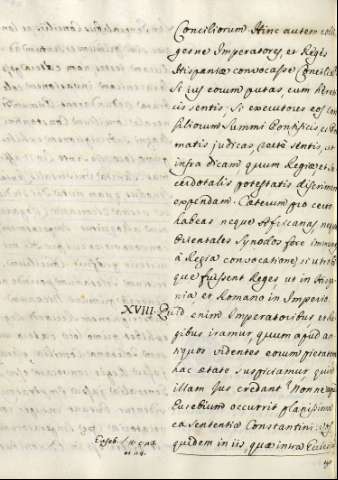 Conciliorum. Hinc autem colli
gesne Imperatores, et Reges
Hispaniæ convocasse Concilia?
Si jus eorum putas, cum hereti
cis sentis. Si executores eos Con
siliorum Summi Pontificis, et Pri
matis judicas, recte sentis, ut
infra dicam, quum Regiæ, et Sa
cerdotalis potestatis discrimen
expendam. Cæterum pro certo
habeas neque Africanas, neque
Orientales Synodos fore immunes
à Regia convocatione, si utrobi
que fuissent Reges ut in Hispa
nia et Romano in Imperio.
XVIII. Quid enim Imperatoribus et Re
gibus iramur quum apud an
tiquos videntes eorum pietatem
hac ætate suspiciamur quod
illam Jus credant? Nonne apud
Eusebium occurrit planissima
ea sententia Constantini: vos
quidem in iis, quæ intra Eccles
Euseb. l. 4. c.
24.